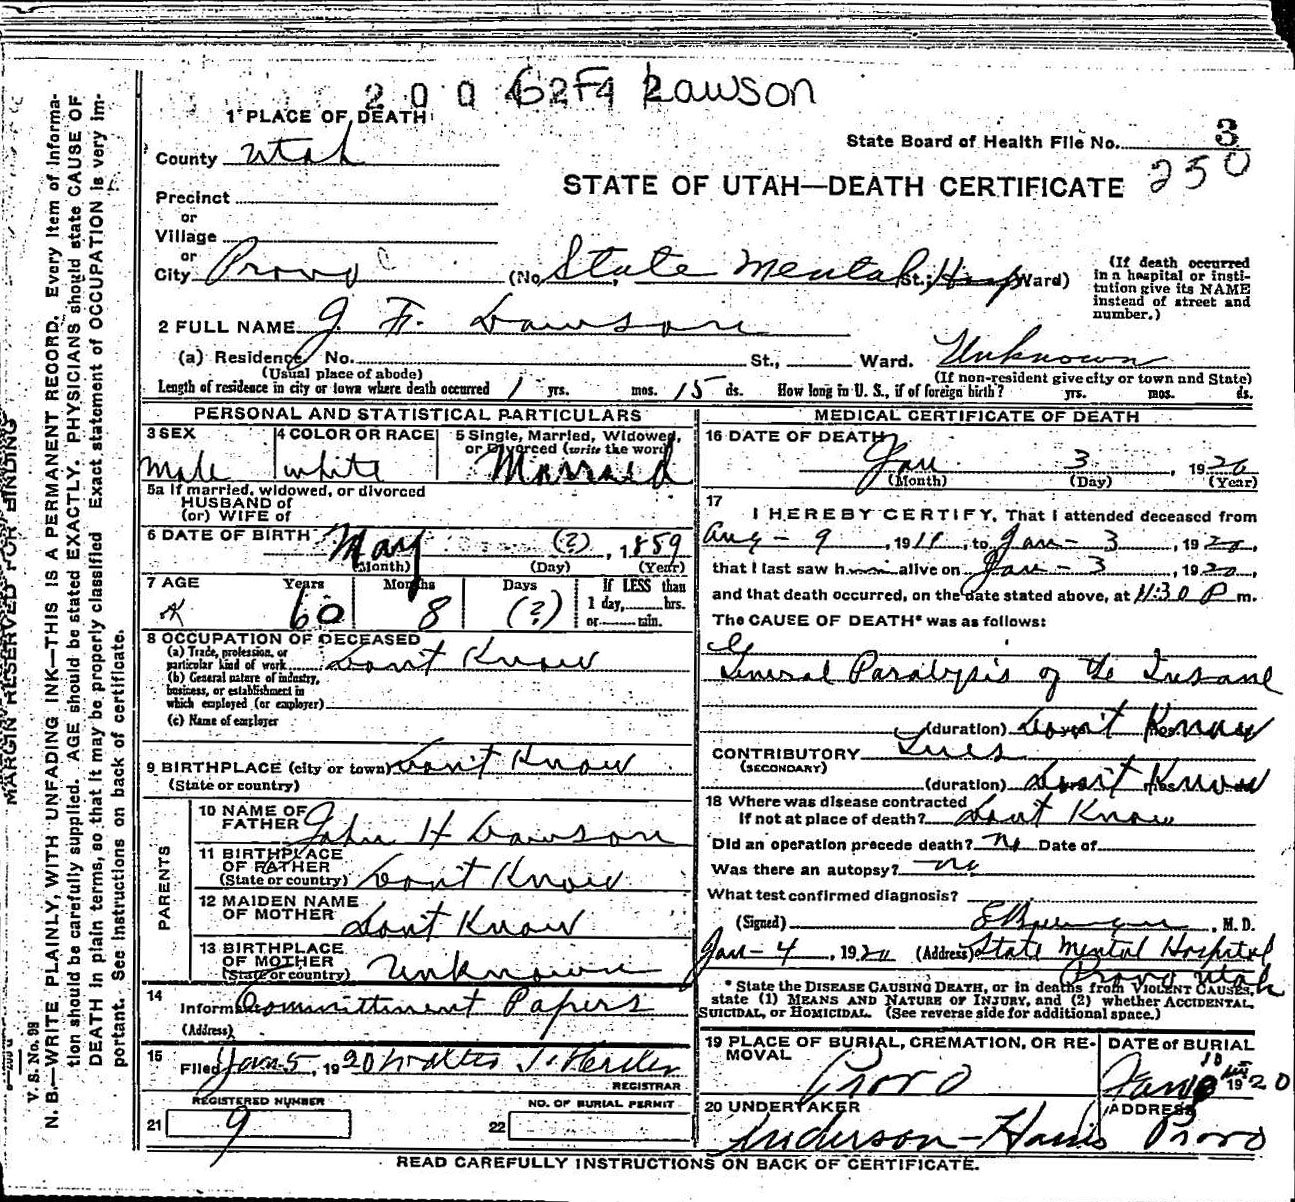 2 0 0 62F4 Lawson
1 PLACE OF DEATH
County Utah
State Board of Health File No. 3
250
STATE OF UTAH—DEATH CERTIFICATE
Precinct
or
Village
or
City Provo (No. State Mental Hosp St.; Ward)
(If death occurred in a hospital or institution give its NAME instead of street and number.)
2 FULL NAME J. F. Lawson
(a) Residence, No. St., Ward. Unknown
(Usual place of abode) (If non-resident give city or town and State)
Length of residence in city or town where death occurred 1 yrs. mos. 15 ds. How long in U. S., if of foreign birth? yrs. mos. ds.
PERSONAL AND STATISTICAL PARTICULARS
3 SEX male
4 COLOR OR RACE white
5 Single, Married, Widowed, or Divorced (write the word) Married
5a If married, widowed, or divorced
HUSBAND of
(or) WIFE of
6 DATE OF BIRTH May (?), 1859
(Month) (Day) (Year)
7 AGE Years 60 Months 8 Days (?) If LESS than 1 day, hrs. or min.
8 OCCUPATION OF DECEASED
(a) Trade, profession, or particular kind of work Dont Know
(b) General nature of industry, business, or establishment in which employed (or employer)
(c) Name of employer
9 BIRTHPLACE (city or town) Don't Know
(State or country)
PARENTS
10 NAME OF FATHER John H Lawson
11 BIRTHPLACE OF FATHER (State or country) Don't Know
12 MAIDEN NAME OF MOTHER Dont Know
13 BIRTHPLACE OF MOTHER (State or country) Unknown
14 Informant Committment Papers
(Address)
15 Filed Jan 5, 1920 Walter
REGISTRAR
REGISTERED NUMBER
21 9
NO. OF BURIAL PERMIT
22
MEDICAL CERTIFICATE OF DEATH
16 DATE OF DEATH
Jan 3, 1920
(Month) (Day) (Year)
17 I HEREBY CERTIFY, That I attended deceased from
Aug - 9, 191, to Jan - 3, 1920,
that I last saw him alive on Jan - 3, 1920,
and that death occurred, on the date stated above, at 11:30 P m.
The CAUSE OF DEATH* was as follows:
General Paralysis of the Insane
(duration) Don't Know
CONTRIBUTORY Lues
(SECONDARY)
(duration) Don't Know
18 Where was disease contracted
if not at place of death? Dont Know
Did an operation precede death? No Date of
Was there an autopsy? no
What test confirmed diagnosis?
(Signed) , M. D.
Jan - 4, 1920 (Address) State Mental Hospital
Provo Utah
* State the DISEASE CAUSING DEATH, or in deaths from VIOLENT CAUSES, state (1) MEANS AND NATURE OF INJURY, and (2) whether ACCIDENTAL, SUICIDAL, or HOMICIDAL. (See reverse side for additional space.)
19 PLACE OF BURIAL, CREMATION, OR REMOVAL Provo
DATE of BURIAL Jan 10 1920
20 UNDERTAKER Anderson - Harris
ADDRESS Provo
READ CAREFULLY INSTRUCTIONS ON BACK OF CERTIFICATE.
MARGIN RESERVED FOR BINDING
V. S. No. 98
N. B.—WRITE PLAINLY, WITH UNFADING INK—THIS IS A PERMANENT RECORD. Every item of information should be carefully supplied. AGE should be stated EXACTLY. PHYSICIANS should state CAUSE OF DEATH in plain terms, so that it may be properly classified. Exact statement of OCCUPATION is very important. See instructions on back of certificate.